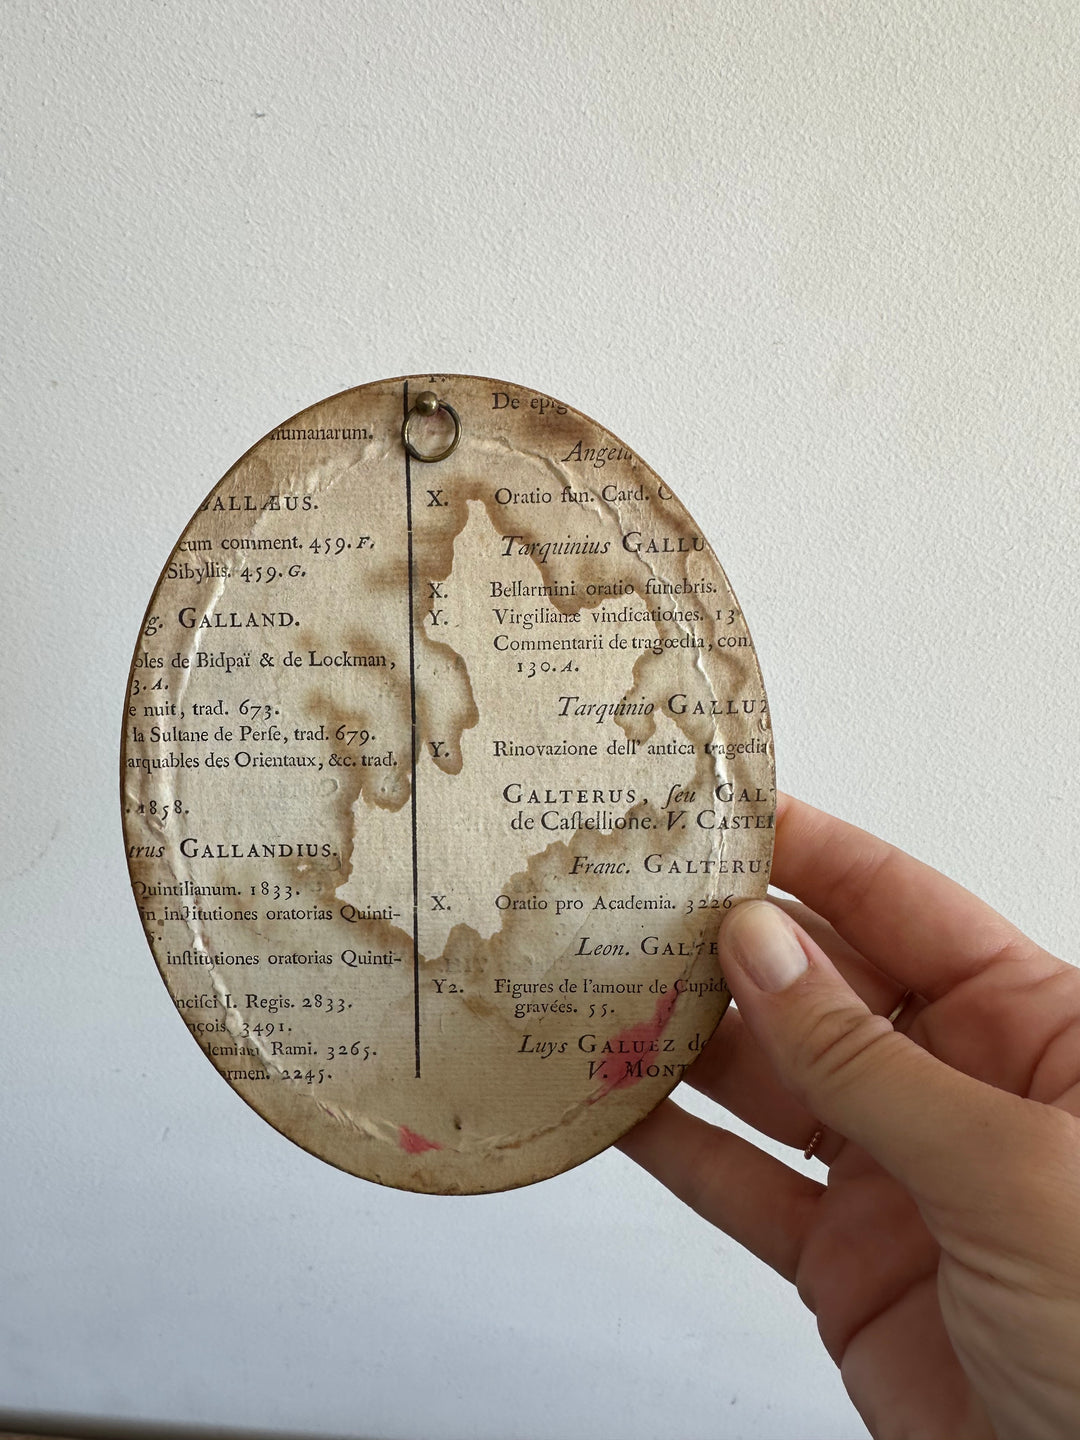 humanarum.
GALLÆUS.
cum comment. 459. F.
Sibyllis. 459. G.
g. GALLAND.
bles de Bidpaï & de Lockman,
3. A.
e nuit, trad. 673.
la Sultane de Perſe, trad. 679.
arquables des Orientaux, &c. trad.
. 1858.
trus GALLANDIUS.
Quintilianum. 1833.
in inſtitutiones oratorias Quinti-
inſtitutiones oratorias Quinti-
nciſci I. Regis. 2833.
nçois. 3491.
demiam Rami. 3265.
rmen. 2245.
De epig
Angelu
X. Oratio fun. Card. C
Tarquinius GALLU
X. Bellarmini oratio funebris.
Y. Virgilianæ vindicationes. 13
Commentarii de tragœdia, com
130. A.
Tarquinio GALLUZ
Y. Rinovazione dell' antica tragedia
GALTERUS, ſeu GALT
de Caſtellione. V. CASTEL
Franc. GALTERUS
X. Oratio pro Academia. 3226.
Leon. GALTE
Y2. Figures de l'amour de Cupid
gravées. 55.
Luys GALUEZ de
V. MONT